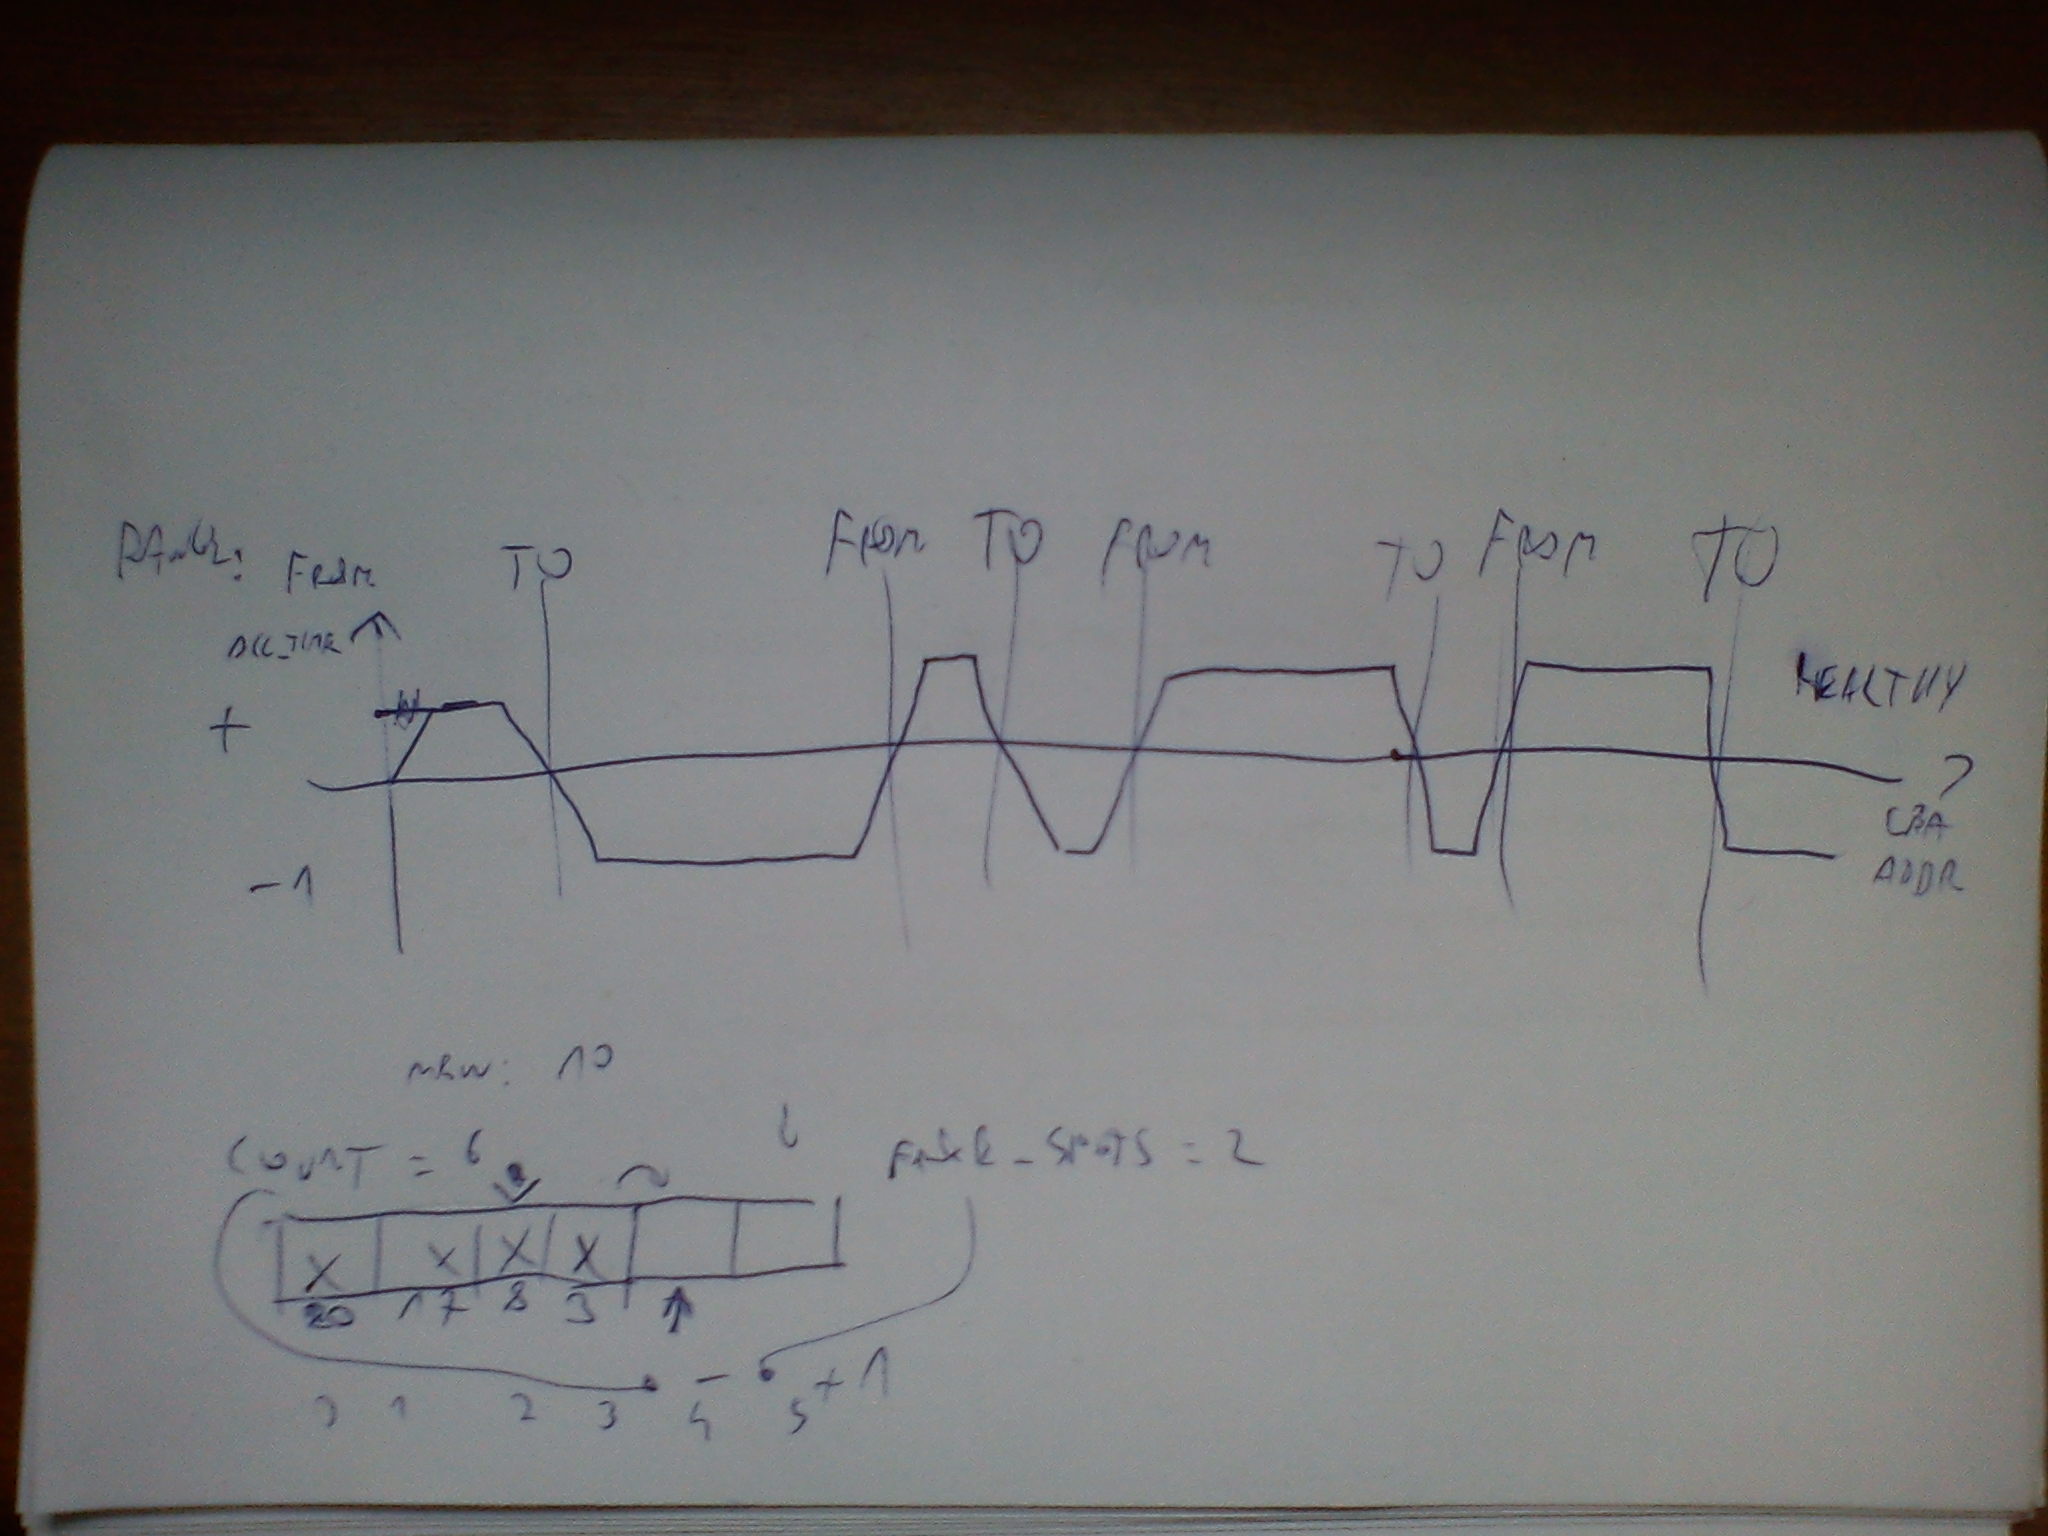 RANGE: FROM TO FROM TO FROM TO FROM TO
ACC_TIME
+ HEALTHY
LBA
-1 ADDR
NEW: 10
COUNT = 6 FREE_SPOTS = 2
X X X X
20 17 8 3
- + 1
0 1 2 3 4 5